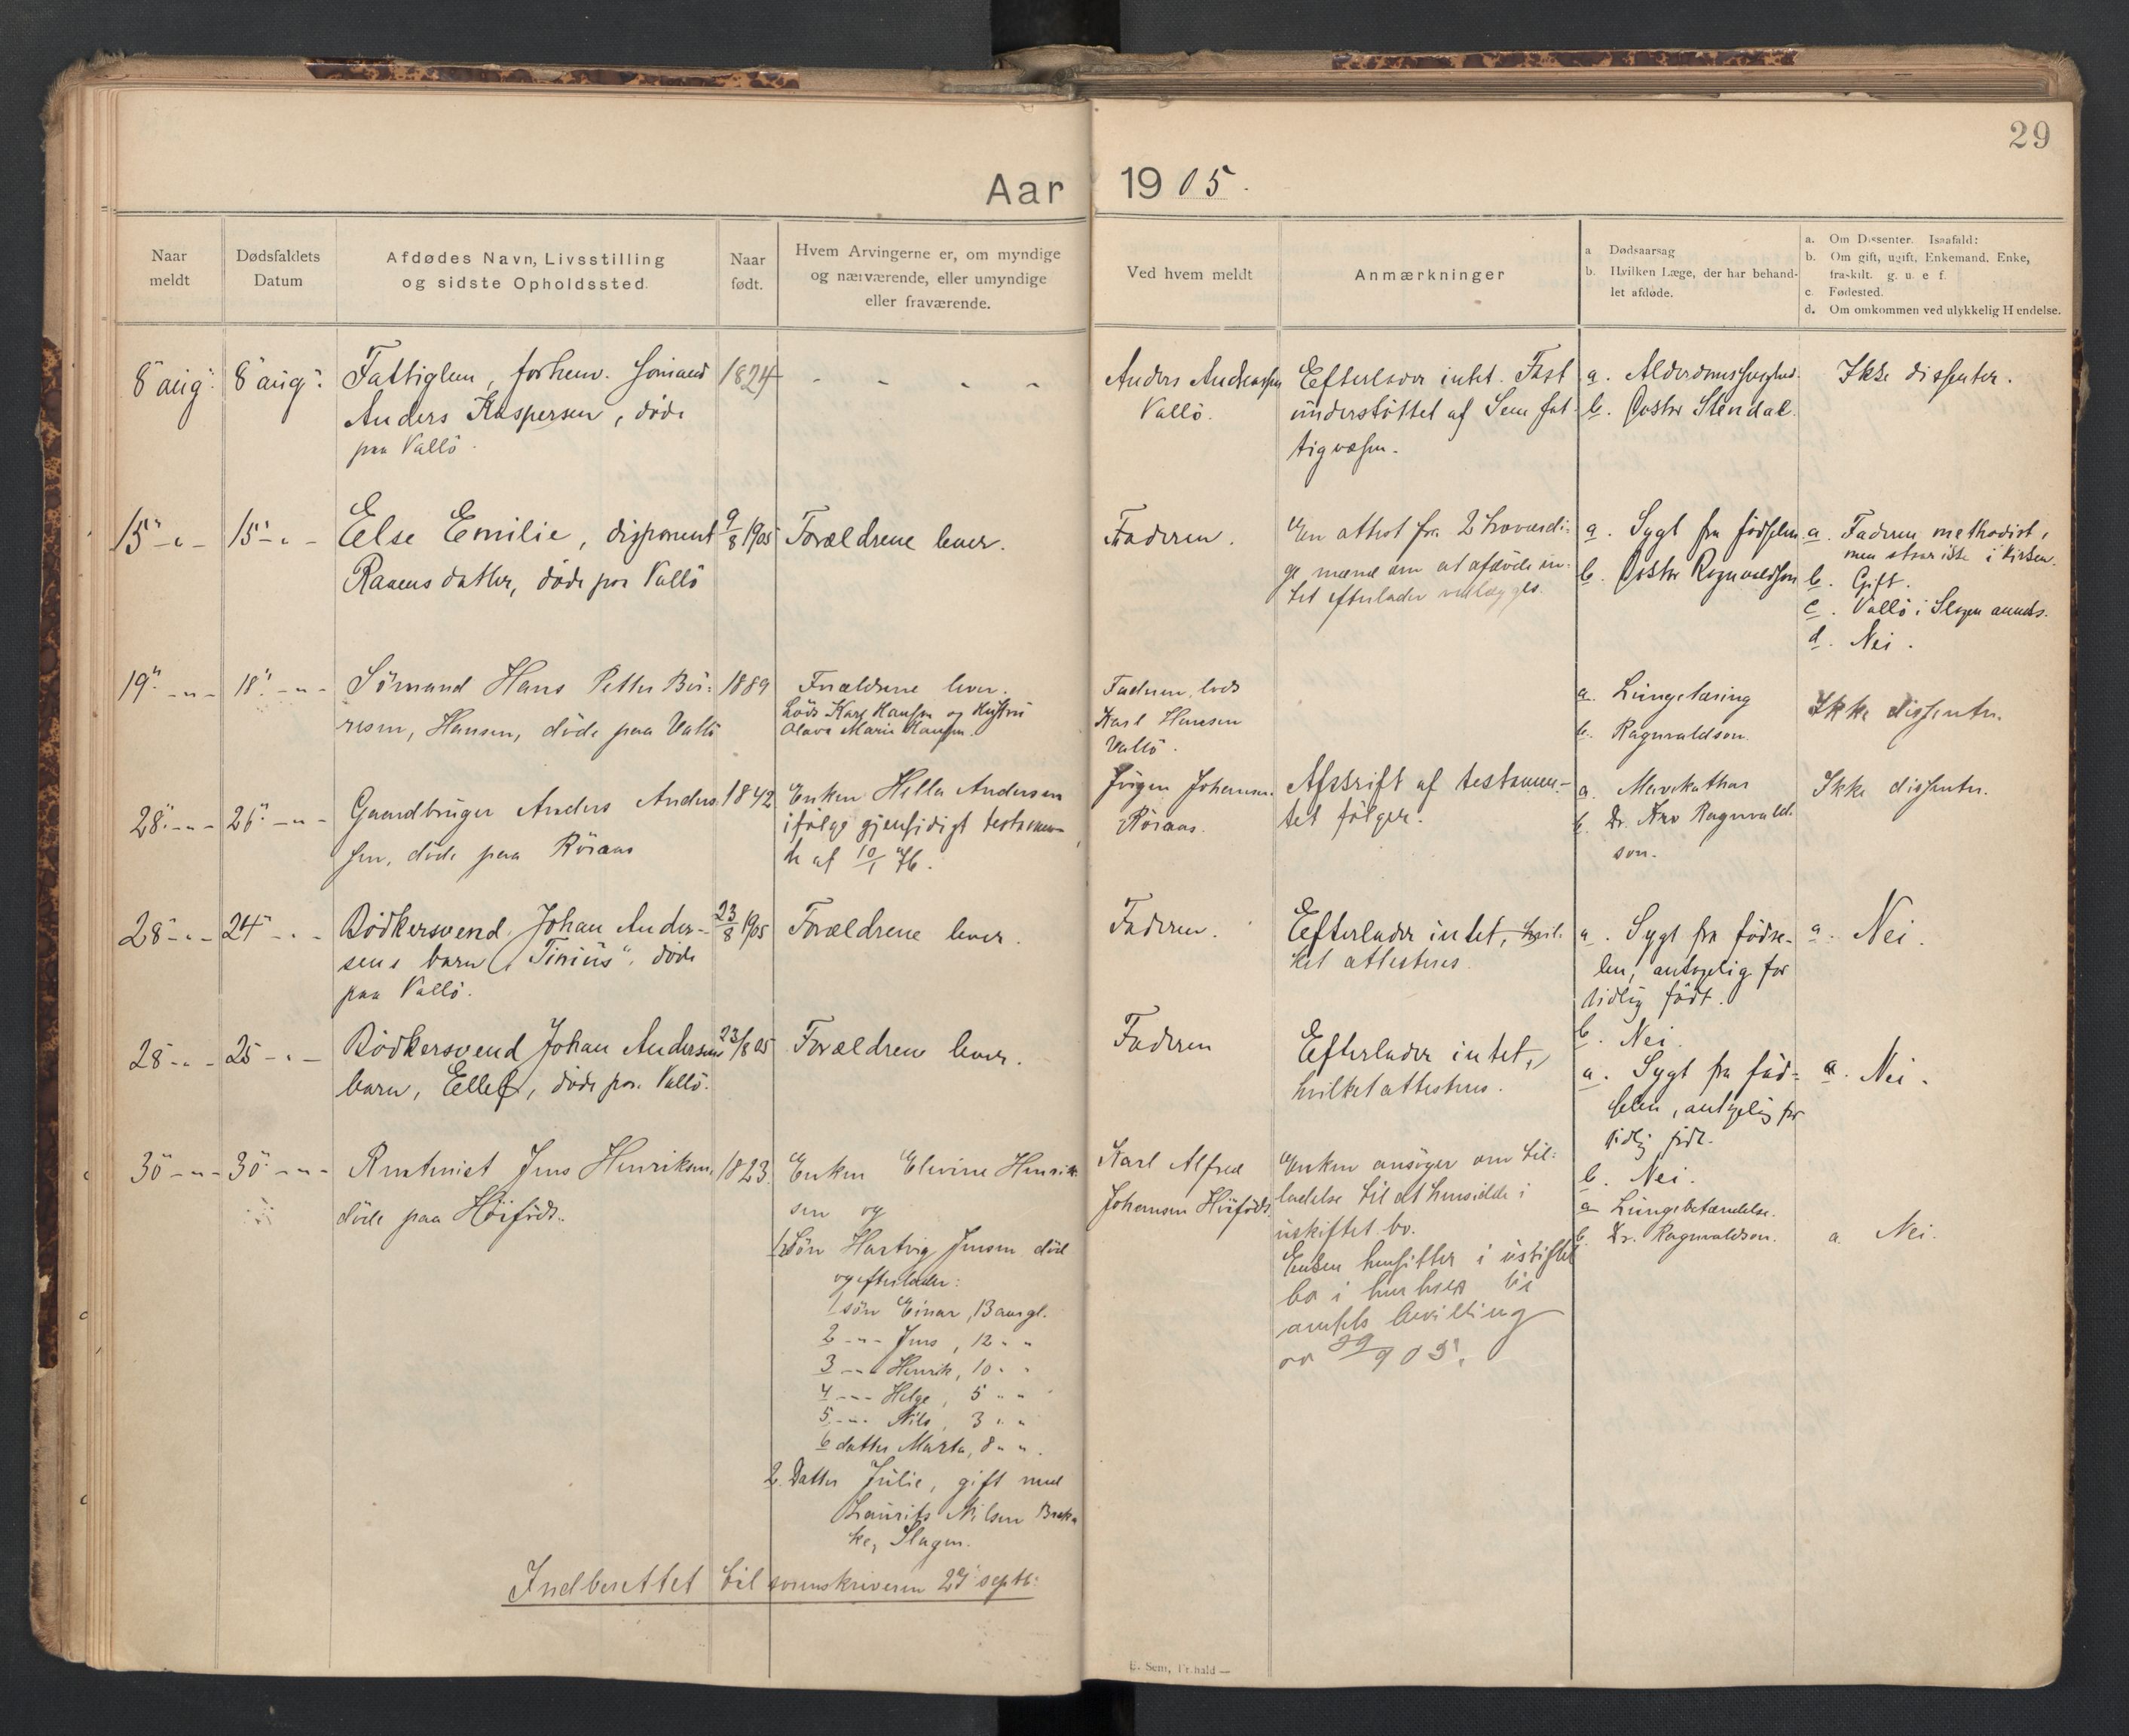 29
Aar 1905.
Naar
meldt
Dødsfaldets
Datum
Afdødes Navn, Livsstilling
og sidste Opholdssted.
Naar
født.
Hvem Arvingerne er, om myndige
og nærværende, eller umyndige
eller fraværende.
Ved hvem meldt
Anmærkninger
a Dødsaarsag
b. Hvilken Læge, der har behand-
let afdøde.
a. Om Dissenter. Isaafald:
b. Om gift, ugift, Enkemand, Enke,
fraskilt. g. u. e f.
c. Fødested.
d. Om omkommen ved ulykkelig Hendelse.
8 aug. 8 aug.
Fattiglem, forhenv. sømand
Anders Kaspersen, døde
paa Vallö.
1824
- - - -
Anders Andreassen
Vallö.
Efterlader intet. Fast
understöttet af Sem fat-
tigvæsen.
a. Alderdomssvaghed.
b. Doktor Stendal.
Ikke dissenter.
15 - " - 15 - " -
Else Emilie, disponent
Raaens datter, döde paa Vallö
9/8 1905
Forældrene lever.
Faderen.
En attest fra 2 troværdi-
ge mænd om at afdöde in-
tet efterlader vedlægges.
a. Sygt fra födselen.
b. Doktor Ragnvaldson
a. Faderen methodist,
men staar ikke i kirken.
b. Gift.
c. Vallö i Slagen
d. Nei.
19 - " - 18 - " -
Sömand Hans Petter
Hansen, döde paa Vallö
1889
Forældrene lever.
Lods Karl Hansen og Hustru
Olava Marie Hansen.
Faderen, lods
Karl Hansen
Vallö.
a. Lungetæring
b. Ragnvaldson.
Ikke dissenter.
28 - " - 26 - " -
Gaardbruger Anders Anders
sen, döde paa Röraas
1842
Enken Hella Andersen
ifölge gjensidigt testamen-
te af 10/1 76.
Jörgen Johansen.
Röraas.
Afskrift af testamen-
tet fölger.
a. Mavekathar
b. Dr. Ragnvald-
son.
Ikke dissenter.
28 - " - 24 - " -
Bödkersvend Johan Ander-
sens barn "Tinius", döde
paa Vallö.
23/8 1905
Forældrene lever.
Faderen.
Efterlader intet, hvil-
ket attesteres.
a. Sygt fra födse-
len, antagelig for
tidlig född.
b. Nei.
a. Nei.
28 - " - 25 - " -
Bödkersvend Johan Andersens
barn, Ellef, döde paa Vallö.
23/8 05
Forældrene lever.
Faderen
Efterlader intet,
hvilket attesteres.
a. Sygt fra föd-
selen, antagelig for
tidlig född.
b. Nei.
a. Nei.
30 - " - 30 - " -
Rentenist Jens Henriksen,
döde paa Höiföds.
1823.
Enken Elevine Henrik-
sen og
1 Sön Hartvig Jensen död
og efterlader:
1 sön Einar, 13 aar gl.
2 - " - Jens, 12 " "
3 - " - Henrik, 10 " "
4 - " - Helge, 5 " "
5 - " - Nils, 3 " "
6 datter Marta, 8 " "
2. Datter Julie, gift med
Laurits Nilsen Bræk-
ke, Slagen.
Karl Alfred
Johansen Höiföds.
Enken ansöger om til-
ladelse til at hensidde i
uskiftet bo.
Enken hensitter i uskiftet
bo i henhold til
amtets bevilling
av 905.
a Lungebetændelse.
b. Dr. Ragnvaldson.
a. Nei.
Indberettet til sorenskriveren 29 septb.
E. Sem, Fr.hald —